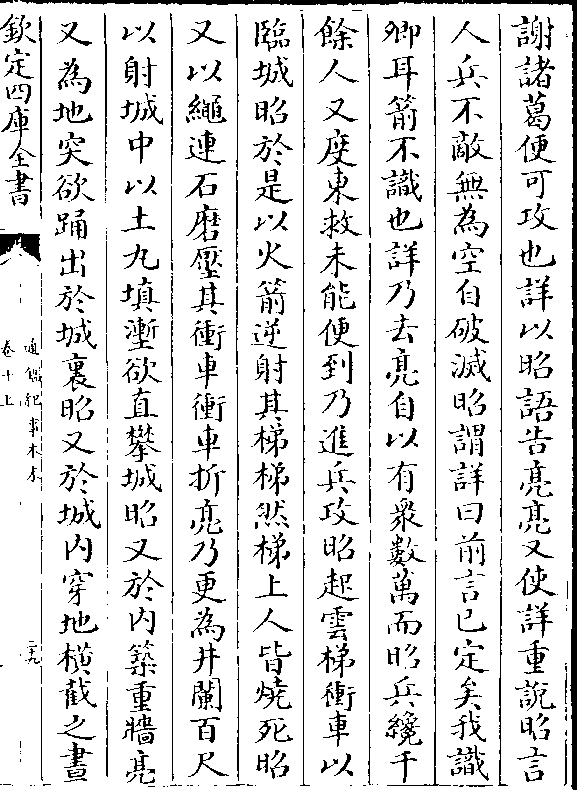 謝諸葛便可攻也詳以昭語告亮亮又使詳重說昭言
人兵不敵無為空自破滅昭謂詳曰前言已定矣我識
卿耳箭不識也詳乃去亮自以有衆數萬而昭兵纔千
餘人又度東救未能便到乃進兵攻昭起雲梯衝車以
臨城昭於是以火箭逆射其梯梯然梯上人皆燒死昭
又以繩連石磨壓其衝車衝車折亮乃更為井闌百尺
以射城中以土丸填壍欲直攀城昭又於内築重牆亮
又為地突欲踊出於城裏昭又於城内穿地横截之晝
欽定四庫全書
通鑑紀事本末
卷十上
二九